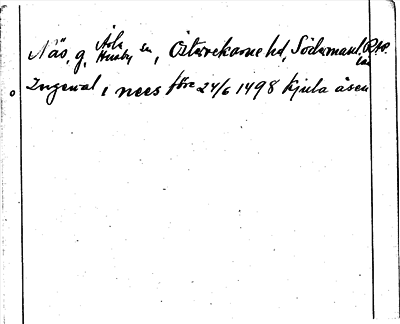 Näs, g. Ärla Husby sn, Österrekarne hd, Södermanl. län
Ingeval i nees före 24/6 1498 Kjula åsen